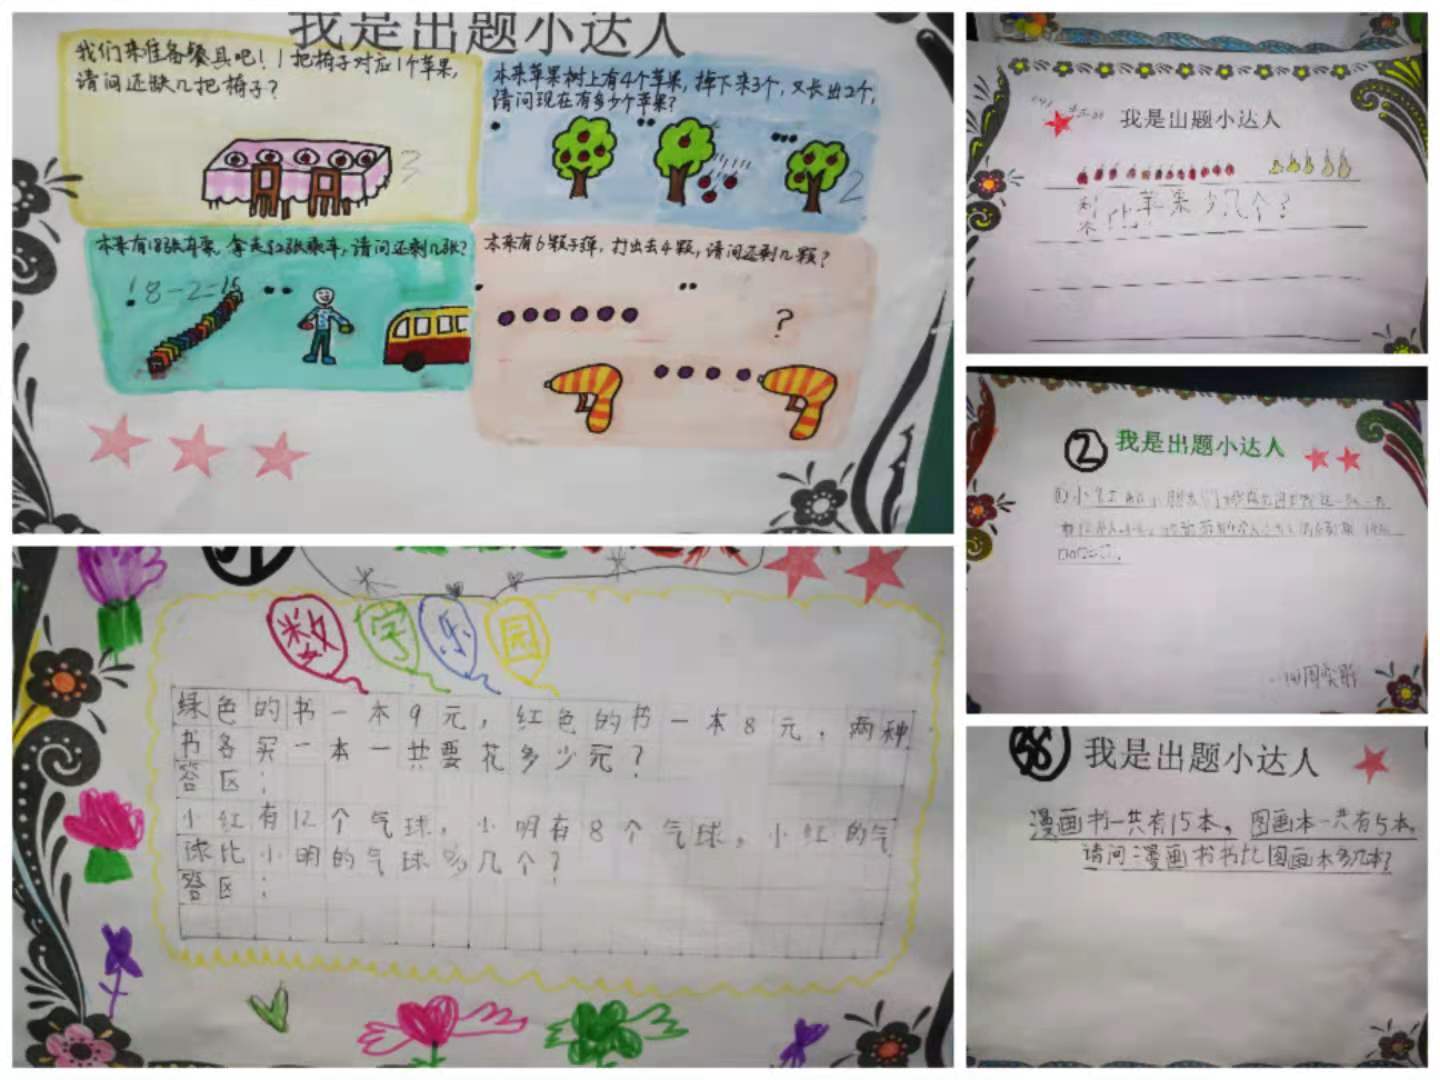 我是出题小达人
我们来准备餐具吧！1把椅子对应1个苹果，
请问还缺几把椅子？
3
本来苹果树上有4个苹果，掉下来3个，又长出2个，
请问现在有多少个苹果？
2
本来有18张车票，拿走12张乘车，请问还剩几张？
18-2=16
本来有6颗子弹，打出去4颗，请问还剩几颗？
?
数学乐园
绿色的书一本9元，红色的书一本8元，两种
书各买一本一共要花多少元？
答区：
小红有12个气球，小明有8个气球，小红的气
球比小明的气球多几个？
答区：
我是出题小达人
梨
比苹果少几个？
② 我是出题小达人
38 我是出题小达人
漫画书一共有15本，图画本一共有5本，
请问漫画书书比图画本多几本？